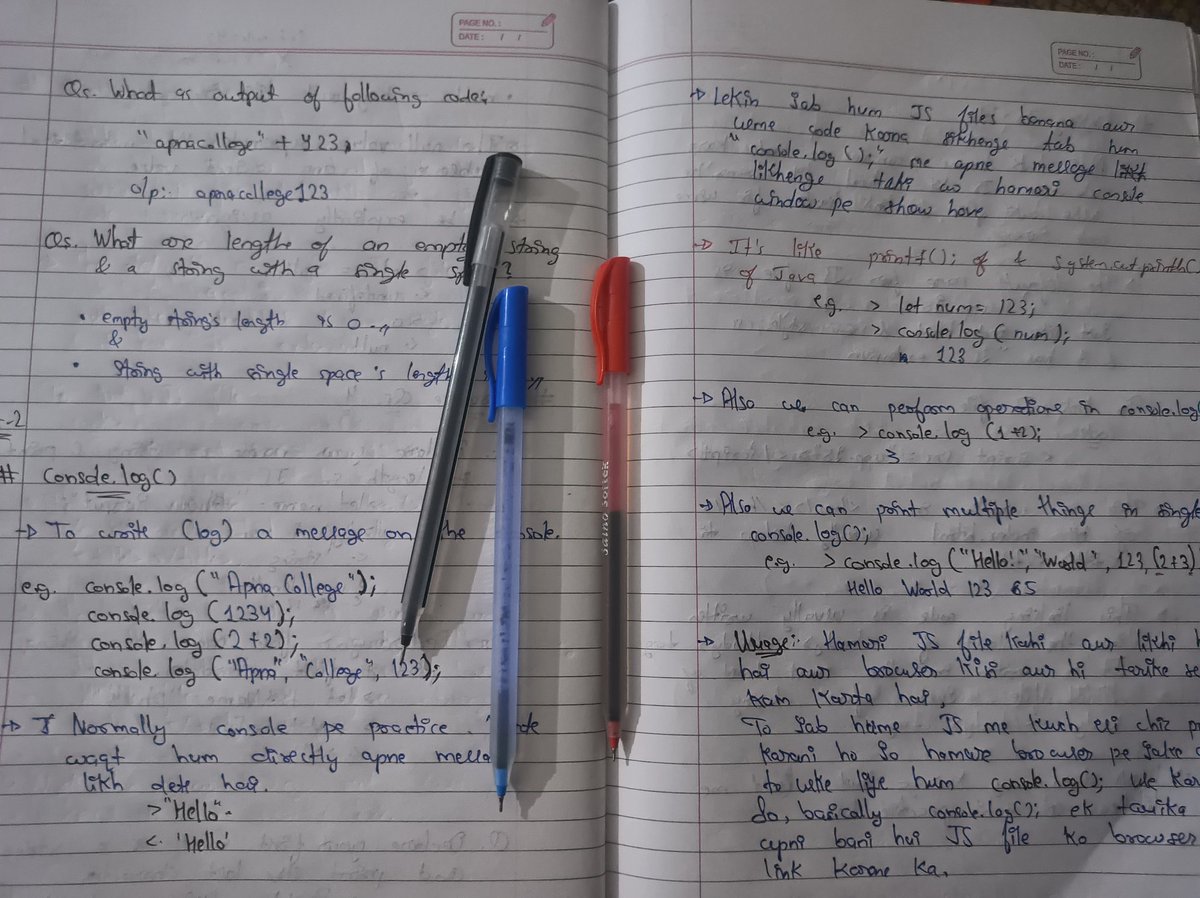 PAGE NO.:
DATE: / /
Qs. What is output of following code:
"apnacollege" + 123,
o/p:- apnacollege123
Qs. What are lengths of an empty string
& a string with a single
• empty string's length is 0
&
• string with single space's length
-2
# Console.log()
→ To write (log) a message on the
e.g. console.log ("Apna College");
console.log (1234);
console.log (2+2);
console.log ("Apna", "College", 123);
→ Normally console pe practice
waqt hum directly apne
likh dete hai.
> "Hello"
< 'Hello'
PAGE NO.:
DATE: / /
→ Lekin jab hum JS files banana aur
usme code karna sikhenge tab hum
"console.log();" me apne message
likhenge taki wo hamari console
window pe show hove
→ It's like printf(); of & System.out.println(
of Java
e.g. > let num = 123;
> console.log (num);
123
→ Also we can perform operations in console.log(
e.g. > console.log (1+2);
3
→ Also we can print multiple things in single
console.log();
e.g. > console.log ("Hello!", "World", 123, (2+3)
Hello World 123 5
→ Usage:- Hamari JS file kahi aur likhi
hai aur browser kisi aur hi tarike se
kam karta hai,
To jab hame JS me kuch
karani ho jo hamare browser pe
to uske liye hum console.log(); use
So, basically console.log(); ek tarika
apni bani hui JS file ko browser
link karne ka.
saino softek